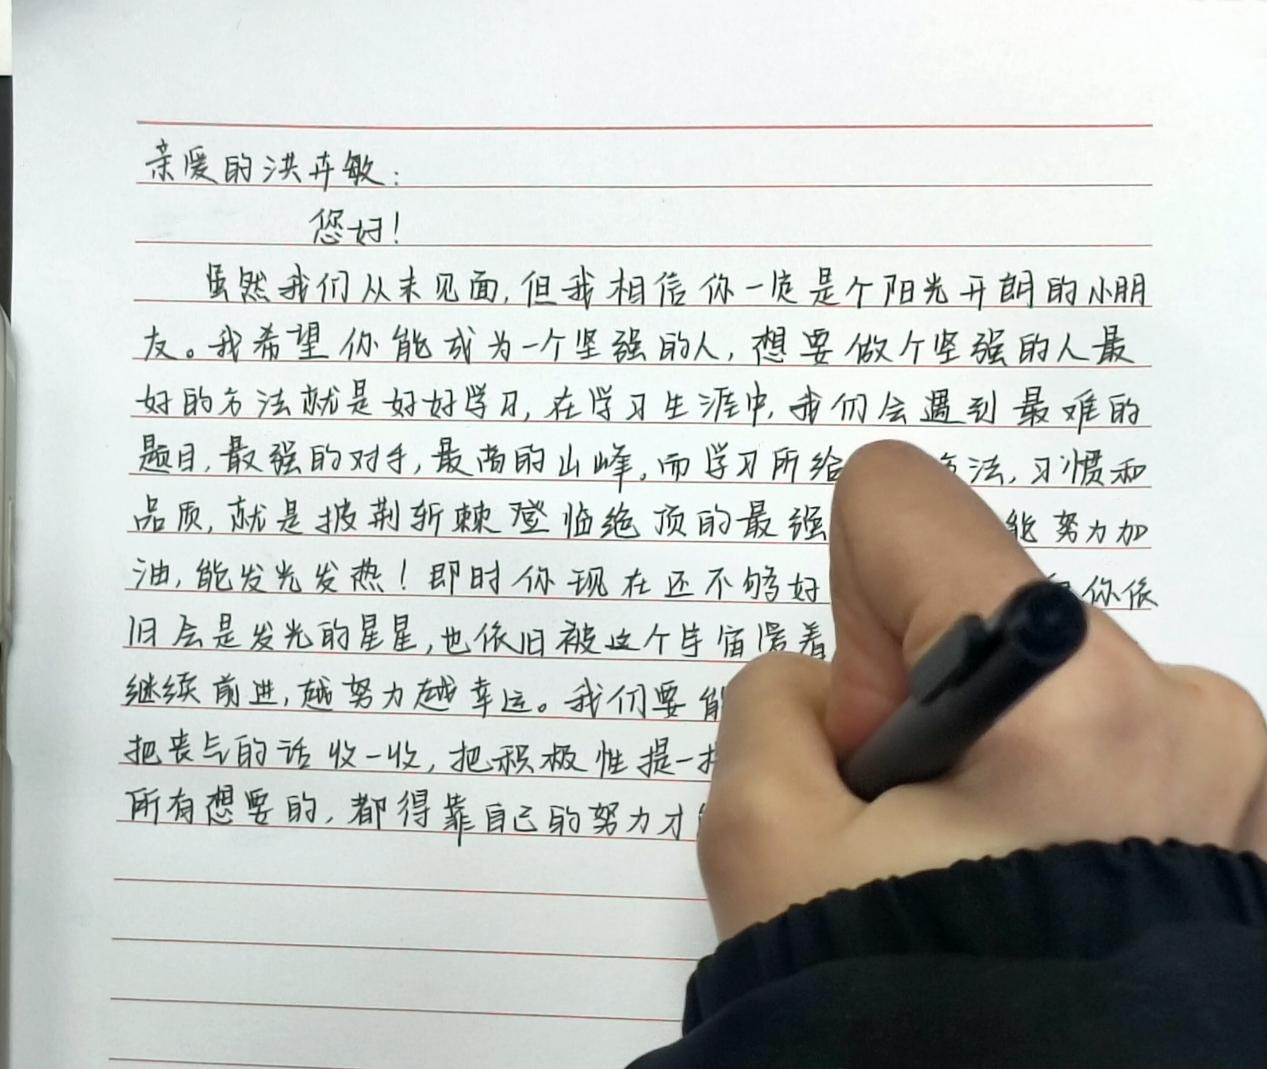 亲爱的洪卉敏：
您好！
虽然我们从未见面，但我相信你一定是个阳光开朗的小朋
友。我希望你能成为一个坚强的人，想要做个坚强的人最
好的方法就是好好学习，在学习生涯中，我们会遇到最难的
题目，最强的对手，最高的山峰，而学习所给 法，习惯和
品质，就是披荆斩棘登临绝顶的最强 能努力加
油，能发光发热！即时你现在还不够好 你依
旧会是发光的星星，也依旧被这个宇宙爱着
继续前进，越努力越幸运。我们要能
把丧气的话收一收，把积极性提一
所有想要的，都得靠自己的努力才